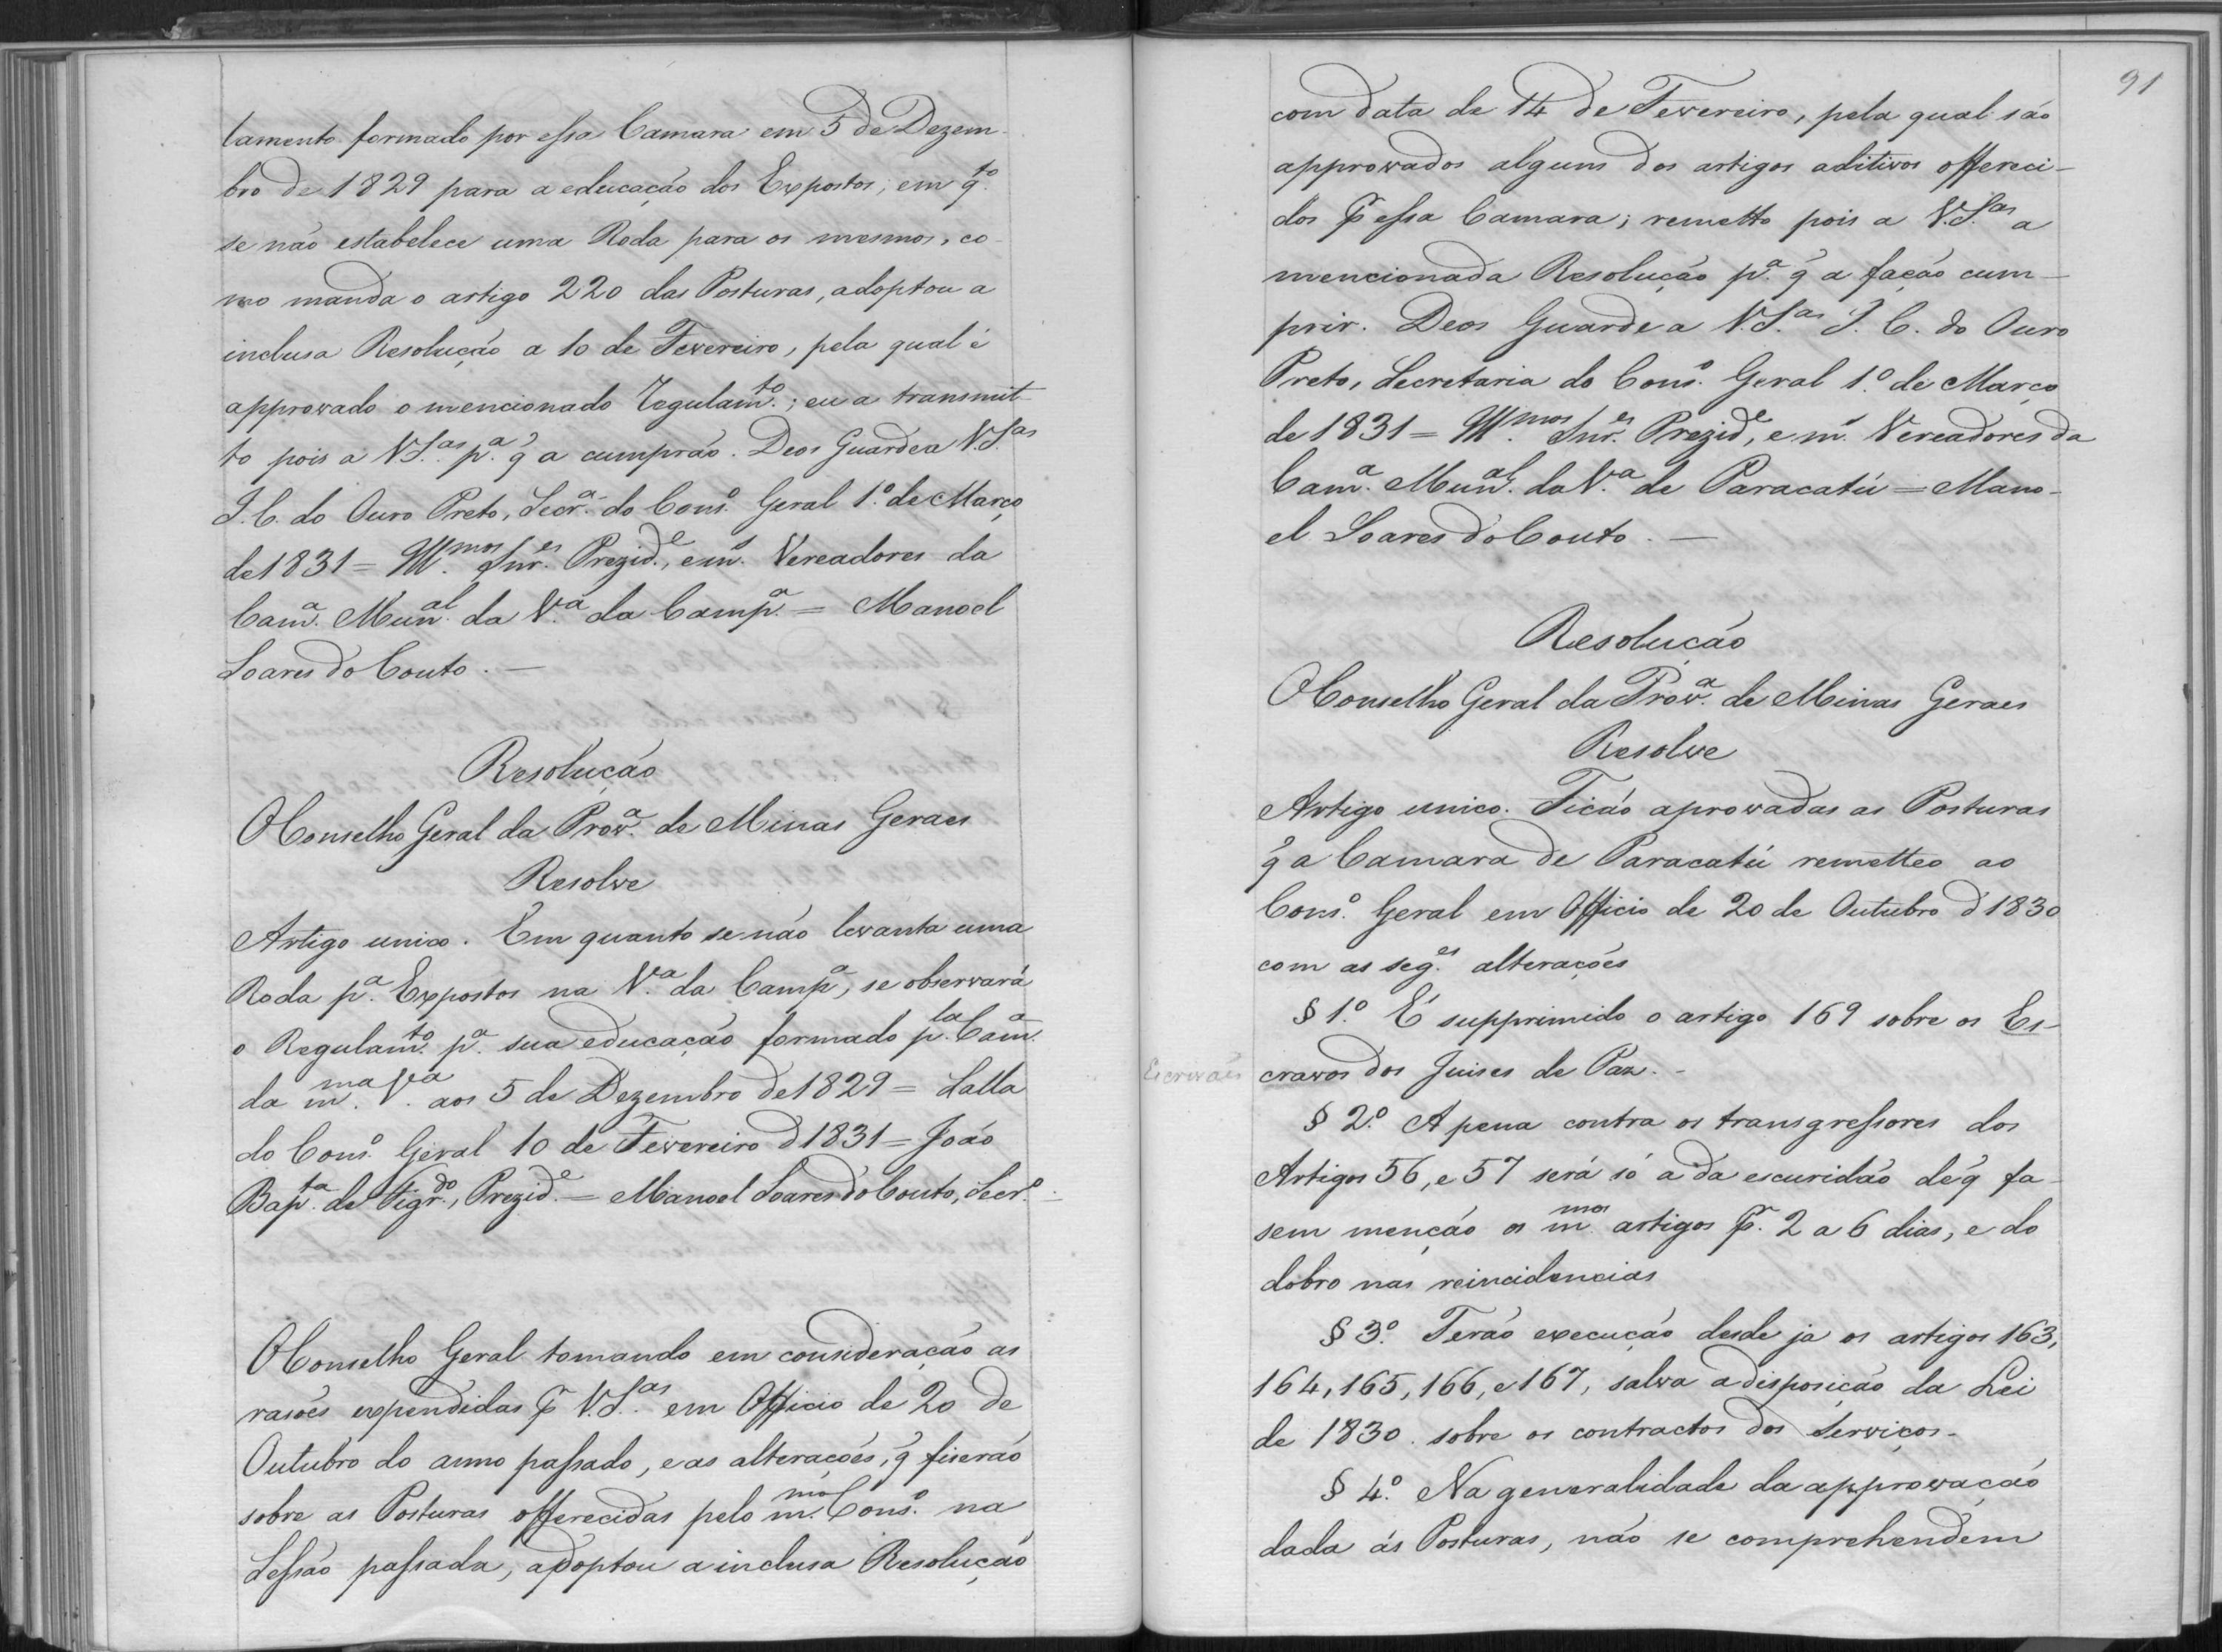 lamento formado por essa Camara em 5 de Dezem-
bro de 1829 para a educação dos Expostos, em q.to
se não estabelece uma Roda para os mesmos, co-
mo manda o artigo 220 das Posturas, adoptou a
inclusa Resolução a 10 de Fevereiro, pela qual é
approvado o mencionado Regulam.to; eu a transmit-
to pois a V.S.as p.a q̃ a cumprão. Deos Guarde a V.S.as
I.C. do Ouro Preto, Secr.a do Cons.o Geral 1.o de Março
de 1831 = Ill.mos Snr.es Prezid.e, e m.s Vereadores da
Cam.a Mun.al da V.a da Camp.a = Manoel
Soares do Couto. —
Resolução
O Conselho Geral da Prov.a de Minas Geraes
Resolve
Artigo unico. Em quanto se não levanta uma
Roda p.a Expostos na V.a da Camp.a, se observará
o Regulam.to p.a sua educação formado p.la Cam.a
da m.ma V.a aos 5 de Dezembro de 1829 = Salla
do Cons.o Geral 10 de Fevereiro d' 1831 = João
Bap.ta de Figr.do, Prezid.e = Manoel Soares do Couto, Secr.o
O Conselho Geral tomando em consideração as
rasões expendidas p̃ V.S.as em Officio de 20 de
Outubro do anno passado, e as alterações, q̃ fiserão
sobre as Posturas offerecidas pelo m.mo Cons.o na
Sessão passada, adoptou a inclusa Resolução
91
com data de 14 de Fevereiro, pela qual são
approvados alguns dos artigos aditivos offereci-
dos p̃ essa Camara; remetto pois a V.S.as a
mencionada Resolução p.a q̃ a fação cum-
prir. Deos Guarde a V.S.as I.C. do Ouro
Preto, Secretaria do Cons.o Geral 1.o de Março
de 1831 = Ill.mos Snr.es Prezid.e, e m.s Vereadores da
Cam.a Mun.al da V.a de Paracatú = Mano-
el Soares do Couto. —
Resolução
O Conselho Geral da Prov.a de Minas Geraes
Resolve
Artigo unico. Ficão aprovadas as Posturas
q̃ a Camara de Paracatú remetteo ao
Cons.o Geral em Officio de 20 de Outubro d' 1830
com as seg.es alterações
§ 1.o É supprimido o artigo 169 sobre os Es-
Escrivães cravos dos Juises de Paz. -
§ 2.o A pena contra os transgressores dos
Artigos 56, e 57 será só a da escuridão de q̃ fa-
sem menção os m.mos artigos p̃. 2 a 6 dias, e do
dobro nas reincidencias
§ 3.o Terão execução desde ja os artigos 163,
164, 165, 166, e 167, salva a disposição da Lei
de 1830. sobre os contractos dos Serviços. -
§ 4.o Na generalidade da approvação
dada ás Posturas, não se comprehendem